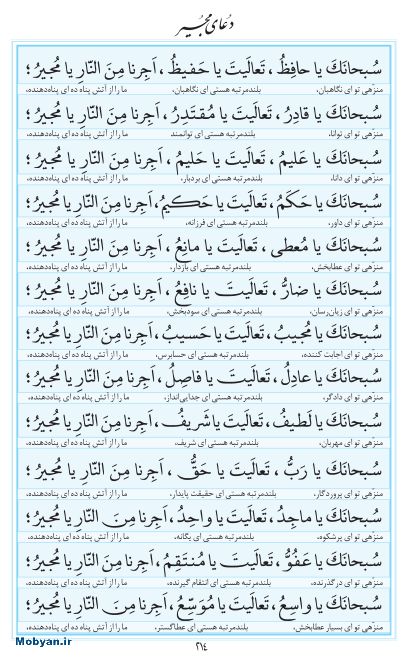 دعای مجیر
سُبحانَكَ یا حافِظُ ، تَعالَیتَ یا حَفیظُ ، اَجِرنا مِنَ النّارِ یا مُجیرُ ؛
منزّهی تو ای نگاهبان، بلندمرتبه هستی ای نگاهبان، ما را از آتش پناه ده ای پناه‌دهنده،
سُبحانَكَ یا قادِرُ ، تَعالَیتَ یا مُقتَدِرُ ، اَجِرنا مِنَ النّارِ یا مُجیرُ ؛
منزّهی تو ای توانا، بلندمرتبه هستی ای توانمند ما را از آتش پناه ده ای پناه‌دهنده،
سُبحانَكَ یا عَلیمُ ، تَعالَیتَ یا حَلیمُ ، اَجِرنا مِنَ النّارِ یا مُجیرُ ؛
منزّهی تو ای دانا، بلندمرتبه هستی ای بردبار، ما را از آتش پناه ده ای پناه‌دهنده،
سُبحانَكَ یا حَكَمُ ، تَعالَیتَ یا حَكیمُ ، اَجِرنا مِنَ النّارِ یا مُجیرُ ؛
منزّهی تو ای داور، بلندمرتبه هستی ای فرزانه، ما را از آتش پناه ده ای پناه‌دهنده،
سُبحانَكَ یا مُعطی ، تَعالَیتَ یا مانِعُ ، اَجِرنا مِنَ النّارِ یا مُجیرُ ؛
منزّهی تو ای عطابخش، بلندمرتبه هستی ای بازدار، ما را از آتش پناه ده ای پناه‌دهنده،
سُبحانَكَ یا ضارُّ ، تَعالَیتَ یا نافِعُ ، اَجِرنا مِنَ النّارِ یا مُجیرُ ؛
منزّهی تو ای زیان‌رسان، بلندمرتبه هستی ای سودبخش، ما را از آتش پناه ده ای پناه‌دهنده،
سُبحانَكَ یا مُجیبُ ، تَعالَیتَ یا حَسیبُ ، اَجِرنا مِنَ النّارِ یا مُجیرُ ؛
منزّهی تو ای اجابت کننده، بلندمرتبه هستی ای حسابرس، ما را از آتش پناه ده ای پناه‌دهنده،
سُبحانَكَ یا عادِلُ ، تَعالَیتَ یا فاصِلُ ، اَجِرنا مِنَ النّارِ یا مُجیرُ ؛
منزّهی تو ای دادگر، بلندمرتبه هستی ای جدایی‌انداز، ما را از آتش پناه ده ای پناه‌دهنده،
سُبحانَكَ یا لَطیفُ ، تَعالَیتَ یا شَریفُ ، اَجِرنا مِنَ النّارِ یا مُجیرُ ؛
منزّهی تو ای مهربان، بلندمرتبه هستی ای شریف، ما را از آتش پناه ده ای پناه‌دهنده،
سُبحانَكَ یا رَبُّ ، تَعالَیتَ یا حَقُّ ، اَجِرنا مِنَ النّارِ یا مُجیرُ ؛
منزّهی تو ای پروردگار، بلندمرتبه هستی ای حقیقت پایدار، ما را از آتش پناه ده ای پناه‌دهنده،
سُبحانَكَ یا ماجِدُ ، تَعالَیتَ یا واحِدُ ، اَجِرنا مِنَ النّارِ یا مُجیرُ ؛
منزّهی تو ای پرشکوه، بلندمرتبه هستی ای یگانه، ما را از آتش پناه ده ای پناه‌دهنده،
سُبحانَكَ یا عَفُوُّ ، تَعالَیتَ یا مُنتَقِمُ ، اَجِرنا مِنَ النّارِ یا مُجیرُ ؛
منزّهی تو ای درگذرنده، بلندمرتبه هستی ای انتقام گیرنده، ما را از آتش پناه ده ای پناه‌دهنده،
سُبحانَكَ یا واسِعُ ، تَعالَیتَ یا مُوَسِّعُ ، اَجِرنا مِنَ النّارِ یا مُجیرُ ؛
منزّهی تو ای بسیار عطابخش، بلندمرتبه هستی ای عطاگستر، ما را از آتش پناه ده ای پناه‌دهنده،
۲۱۴
Mobyan.ir